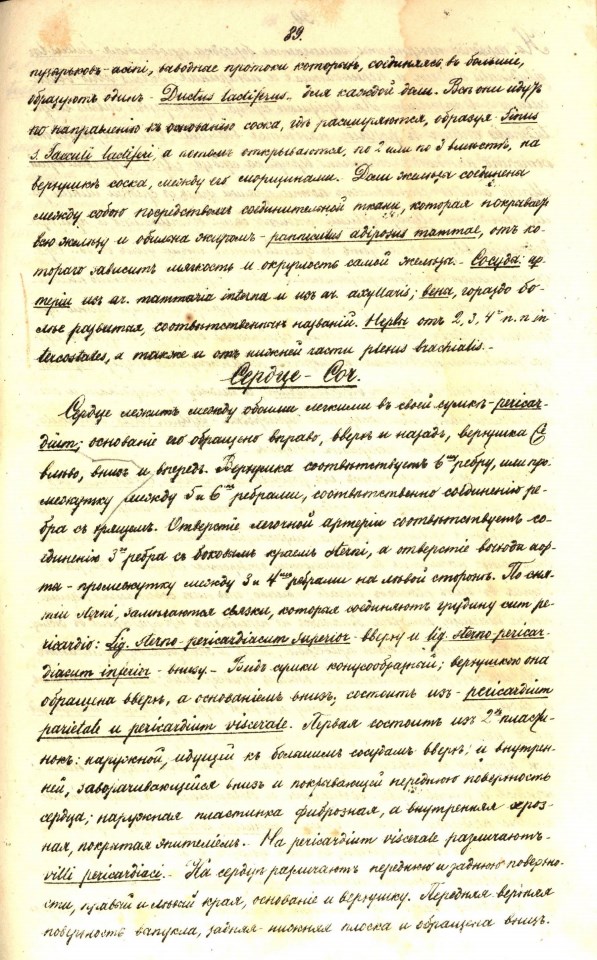 89.
пузырьков - acini, выводные протоки которых, соединяясь в большие,
образуют один - Ductus lactiferus - для каждой доли. Все они идутъ
по направленію къ основанію соска, где расширяются, образуя Sinus
s. Sacculi lactiferi, а потомъ открываются, по 2 или по 3 вместѣ, на
верхушкѣ соска, между его морщинами. Доли железы соединены
между собою посредствомъ соединительной ткани, которая покрываетъ
всю железу и обильна жиромъ - panniculus adiposus mammae, отъ ко-
тораго зависитъ мягкость и округлость самой железы. - Сосуды: ар-
теріи изъ ar. mammaria interna и изъ ar. axyllaris; вены, гораздо бо-
лѣе развитыя, соотвѣтственныхъ названій. Нервы отъ 2, 3, 4 n. n in
tercostales, а также и отъ нижней части plexus brachialis. -
Сердце - Cor.
Сердце лежитъ между обоими легкими въ своей сумкѣ - pericar-
dium; основаніе его обращено вправо, вверхъ и назадъ, верхушка
влѣво, внизъ и впередъ. Верхушка соотвѣтствуетъ 6 ребру, или про-
межутку между 5 и 6 ребрами, соотвѣтственно соединенію ре-
бра съ хрящемъ. Отверстіе легочной артеріи соотвѣтствуетъ со-
единенію 3 ребра съ боковымъ краемъ sterni, а отверстіе выхода аор-
та - промежутку между 3 и 4 ребрами на лѣвой сторонѣ. По сня-
тіи sterni, замѣчаются связки, которыя соединяютъ грудину cum pe-
ricardio: Lig. sterno-pericardiacum superior - вверху и lig. sterno-pericar-
diacum inferior - внизу. - Видъ сумки конусообразный; верхушкою она
обращена вверхъ, а основаніемъ внизъ; состоитъ изъ - pericardium
parietale и pericardium viscerale. Первая состоитъ изъ 2 пласти-
нокъ: наружной, идущей къ большимъ сосудамъ вверхъ; и внутрен-
ней, заворачивающейся внизъ и покрывающей переднюю поверхность
сердца; наружная пластинка фиброзная, а внутренняя сероз-
ная, покрытая эпителіемъ. На pericardium viscerale различаютъ -
villi pericardiaci. - На сердцѣ различаютъ переднюю и заднюю поверхно-
сти, правый и лѣвый края, основаніе и верхушку. Передняя-верхняя
поверхность выпукла, задняя-нижняя плоска и обращена внизъ.